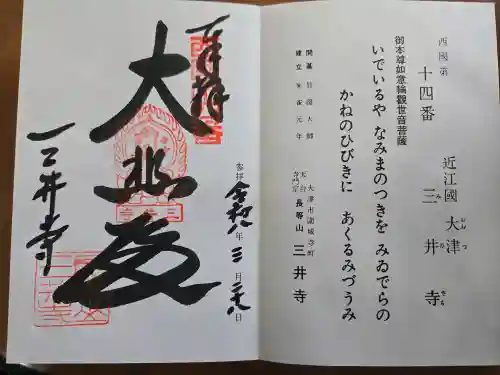 西國第
十四番
近江國 大津
おおつ
三井寺
み ゐ でら
御本尊如意輪觀世音菩薩
いでいるや なみまのつきを みゐでらの
かねのひびきに あくるみづうみ
開基 智證大師
大津市園城寺町
天台寺門宗 長等山 三井寺
奉拝
参拝 令和八年三月二十八日
大悲殿
三井寺